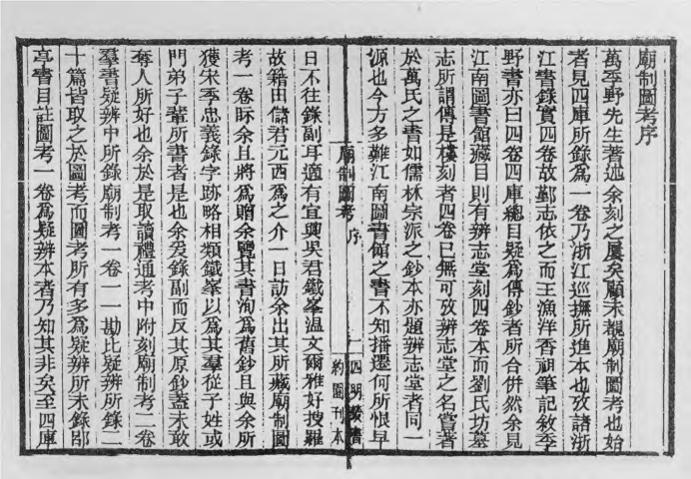 廟制圖考序
萬季野先生著述余刻之屢矣顧未覩廟制圖考也始
者見四庫所錄爲一卷乃浙江巡撫所進本也攷諸浙
江書錄實四卷故鄞志依之而王漁洋香祖筆記敘季
野書亦曰四卷四庫總目疑爲傳鈔者所合併然余見
江南圖書館藏目則有辨志堂刻四卷本而劉氏坊墓
志所謂傳是樓刻者四卷已無可攷辨志堂之名嘗著
於萬氏之書如儒林宗派之鈔本亦題辨志堂者同一
源也今方多難江南圖書館之書不知播遷何所恨早
廟制圖考 序
一 四明叢書
約園刊本
日不往錄副耳適有宜興吳君鐵峯溫文爾雅好搜羅
故籍田儲君元西爲之介一日訪余出其所藏廟制圖
考一卷眎余且將爲贈余覽其書洵爲舊鈔且與余所
獲宋季忠義錄字跡略相類鐵峯以爲其羣從子姓或
門弟子輩所書者是也余爰錄副而反其原鈔蓋未敢
奪人所好也余於是取讀禮通考中附刻廟制考二卷
羣書疑辨中所錄廟制考一卷一一勘比疑辨所錄二
十篇皆取之於圖考而圖考所有多爲疑辨所未錄邵
亭書目註圖考一卷爲疑辨本者乃知其非矣至四庫